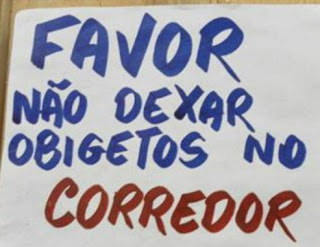 FAVOR
NÃO DEXAR
OBIGETOS NO
CORREDOR